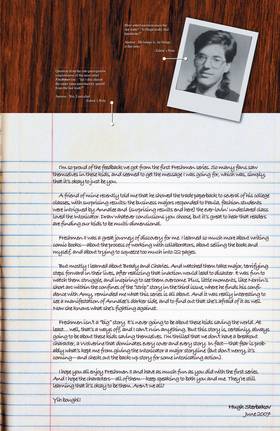 I'm so proud of the feedback we got from the first Freshmen series. So many fans saw
themselves in these kids, and seemed to get the message I was going for, which was, simply,
that it's okay to just be you.
A friend of mine recently told me that he showed the trade paperback to several of his college
classes, with surprising results: the business majors responded to Paula, fashion students
were intrigued by Annalee and (surprising results end here) the ever-lovin' undeclared class
loved the Intoxicator. Draw whatever conclusions you choose, but it's great to hear that readers
are finding our kids to be multi-dimensional.
Freshmen was a great journey of discovery for me. I learned so much more writing
comic books—about the process of working with collaborators, about selling the book and
myself, and about trying to squeeze too much into 22 pages.
But mostly I learned about Beady and Charles. And watched them take major, terrifying
steps forward in their lives, after realizing that inaction would lead to disaster. It was fun to
watch them struggle, and inspiring to see them overcome. Plus, little moments, like Norrin's
short arc within the confines of the "strip" story in the third issue, where he finds his confi-
dence with Amy, reminded me what this series is all about. And it was really interesting to
see a manifestation of Annalee's darker side, and to find out that she's afraid of it as well.
Now she knows what she's fighting against.
Freshmen isn't a "big" story. It's never going to be about these kids saving the world. At
least... well, that's a ways off, and I can't ruin anything. But this story is, certainly, always
going to be about these kids saving themselves. I'm thrilled that we don't have a breakout
character, a Wolverine that dominates every cover and every story. In fact—that fear is prob-
ably what's kept me from giving the Intoxicator a major storyline (but don't worry, it's
coming—and check out the back-up story for some intoxicating action).
I hope you all enjoy Freshmen II and have as much fun as you did with the first series.
And I hope the characters—all of them—keep speaking to both you and me. They're still
learning that it's okay to be them. Aren't we all?
Hugh Sterbakov
June 2007